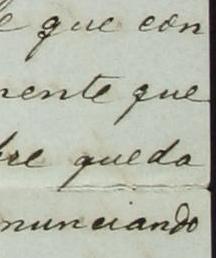 e que con
mente que
bre queda
nunciando